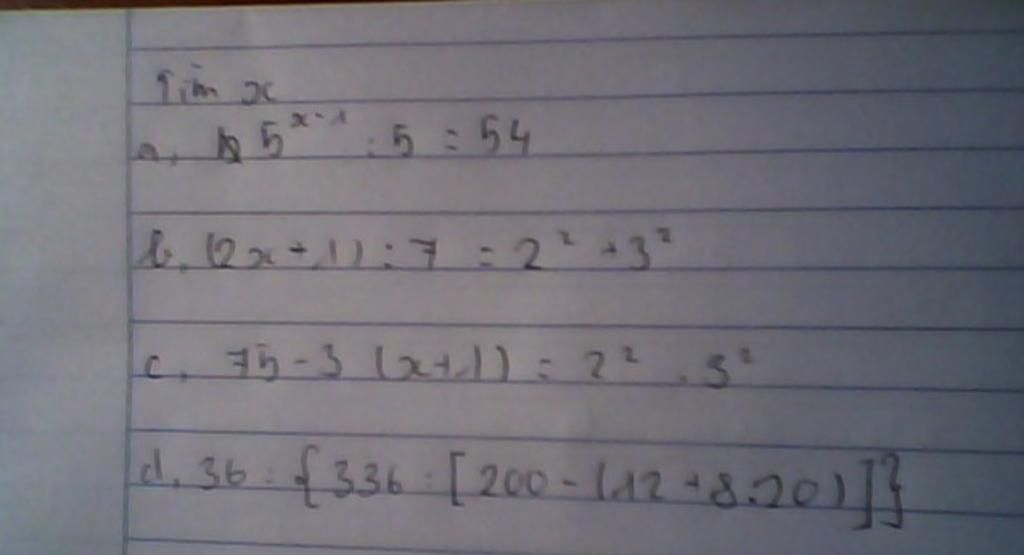 Tìm x
a, 5^x-1 : 5 = 54
b, (2x + 1) : 7 = 2² + 3²
c, 75 - 3 (x+1) = 2² . 3²
d, 36 : {336 : [200 - (12 + 8.20)]}